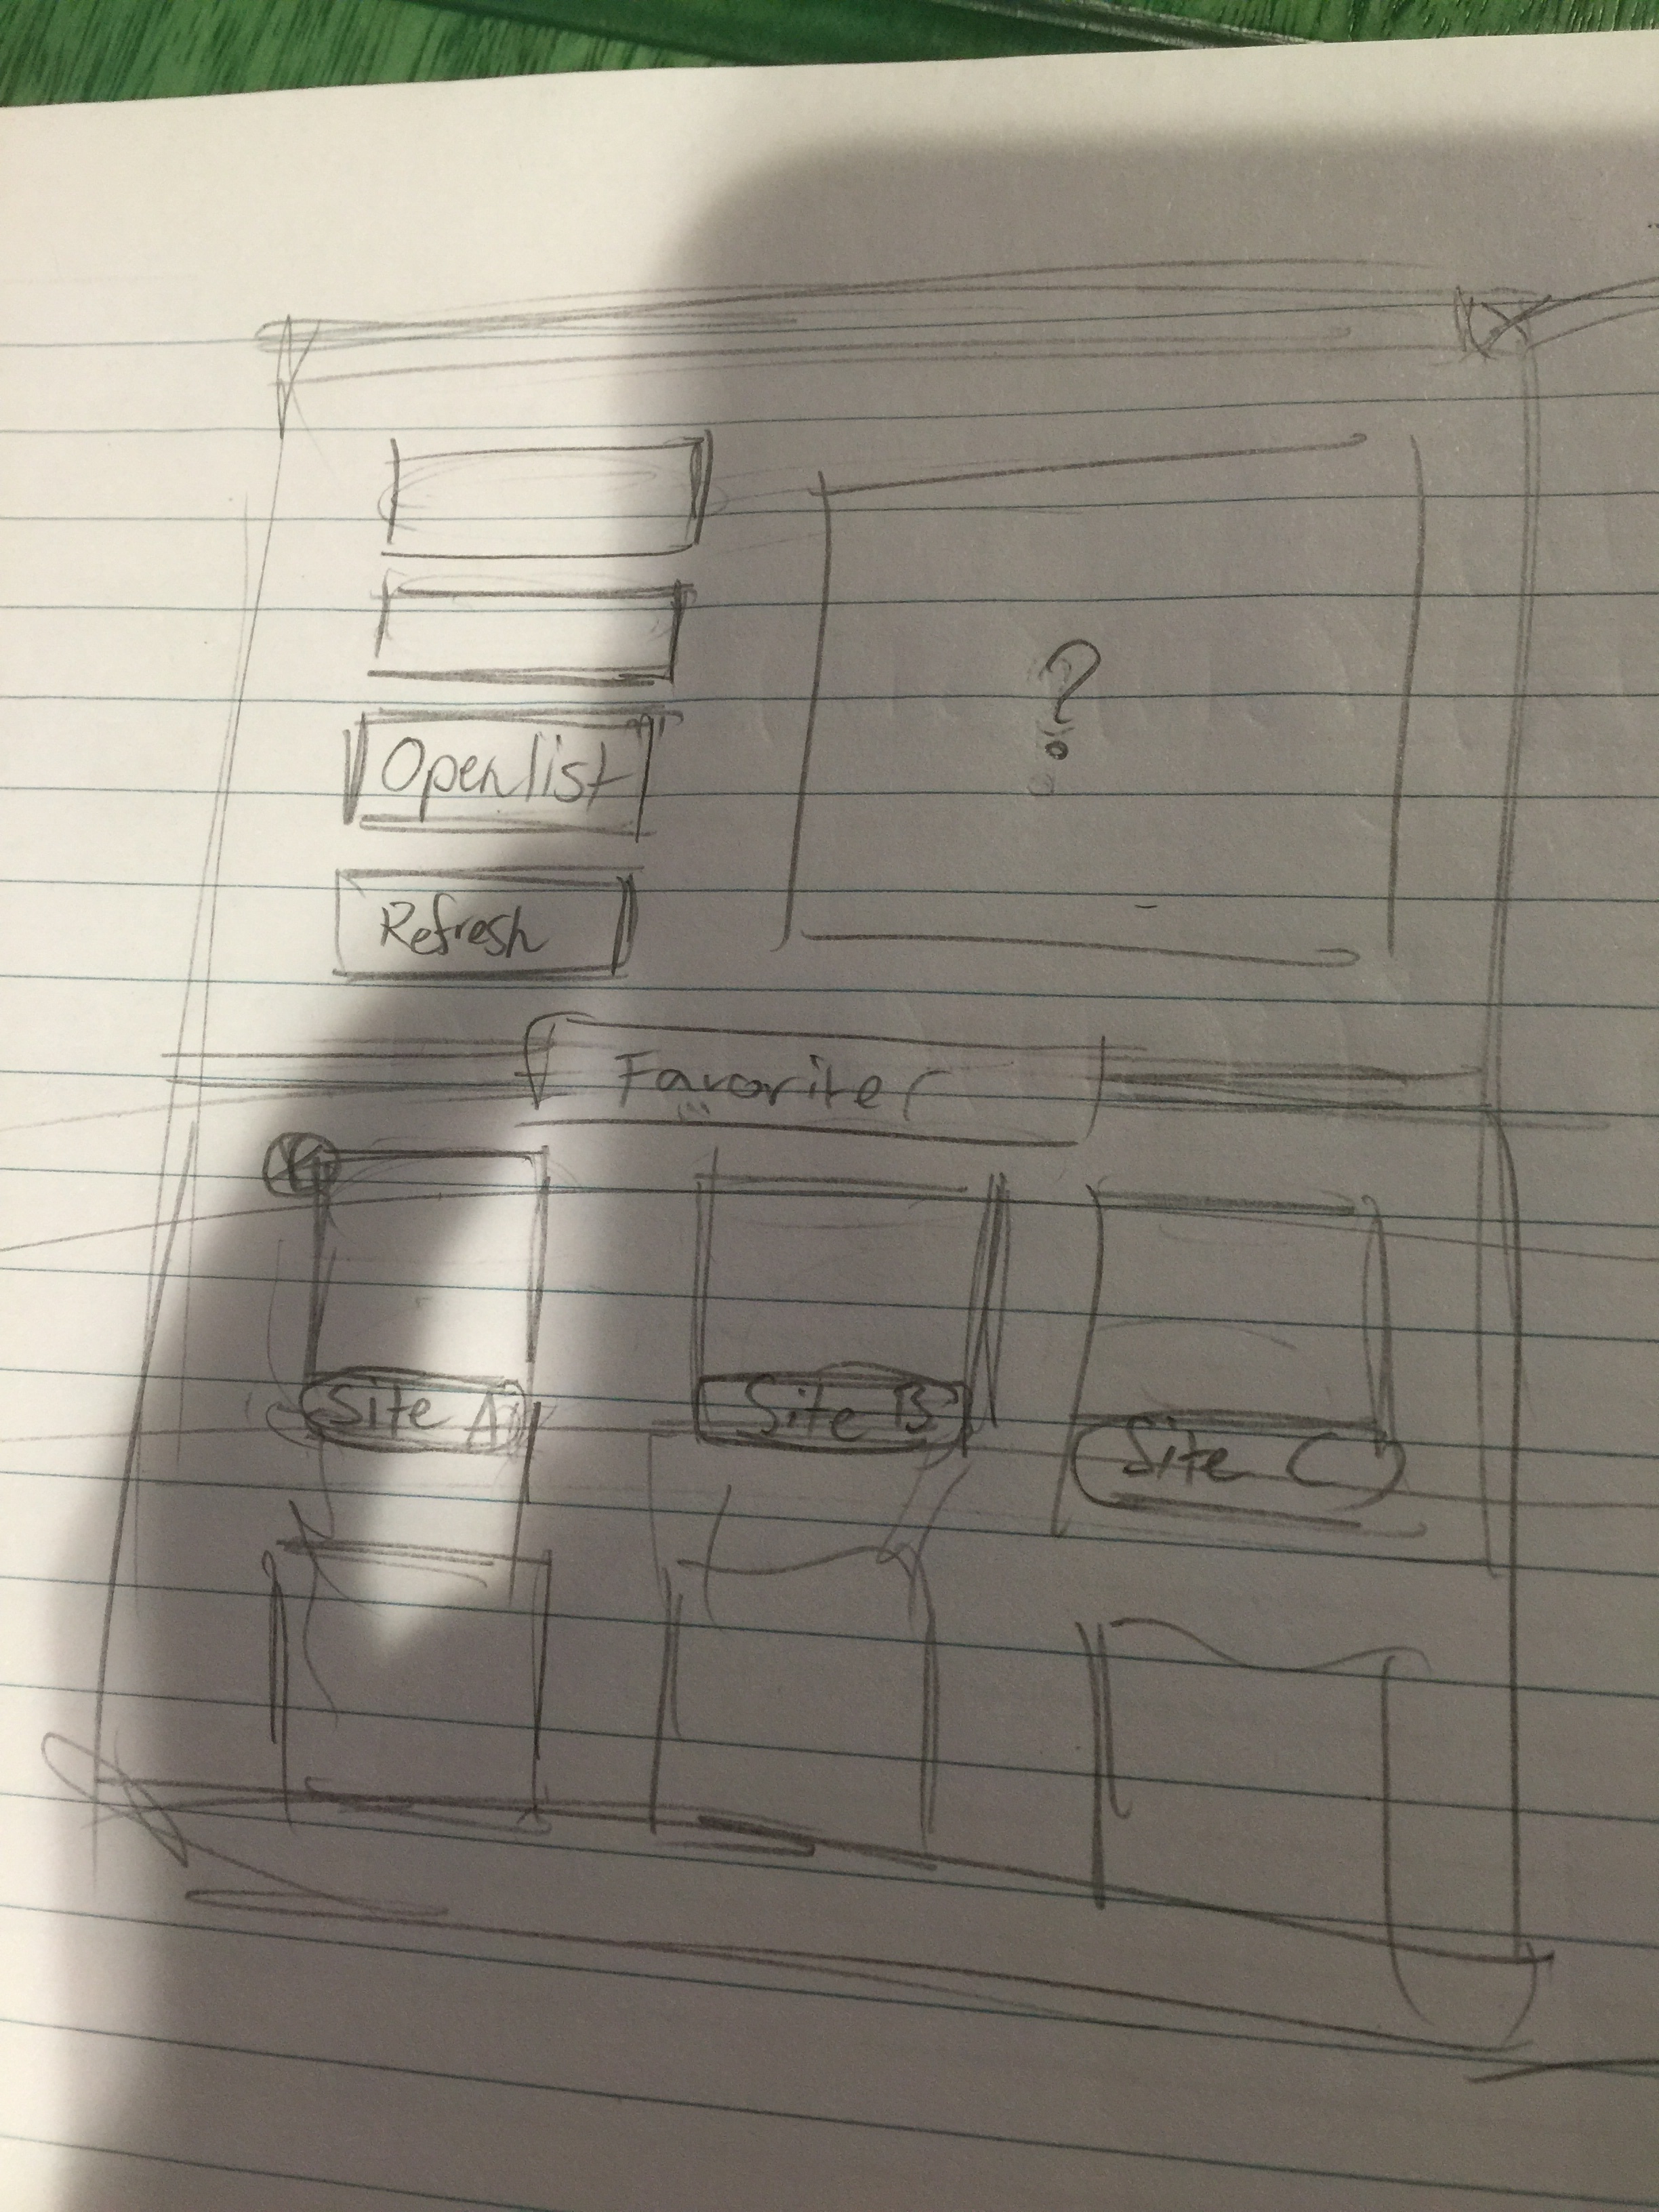 ?
Open list
Refresh
Favorites
Site A
Site B
Site C